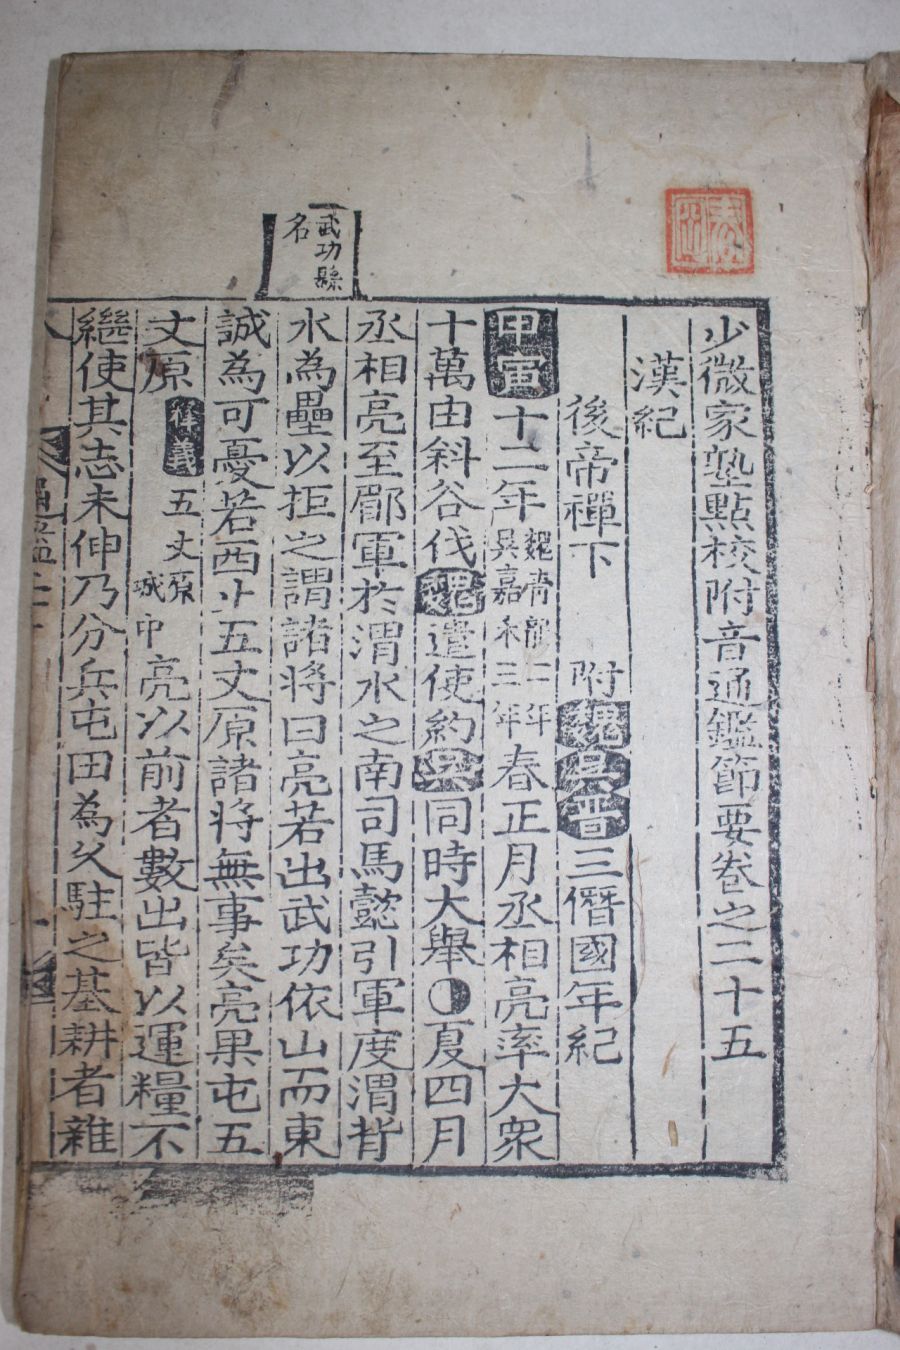 少微家塾點校附音通鑑節要卷之二十五
漢紀
後帝禪下　附魏吳晉三僭國年紀
甲寅十二年魏靑龍二年吳嘉禾三年春正月丞相亮率大衆
十萬由斜谷伐魏遣使約吳同時大舉○夏四月
丞相亮至郿軍於渭水之南司馬懿引軍度渭背
水為壘以拒之謂諸將曰亮若出武功依山而東
武功縣名
誠為可憂若西上五丈原諸將無事矣亮果屯五
丈原釋義五丈原城中亮以前者數出皆以運糧不
繼使其志未伸乃分兵屯田為久駐之基耕者雜